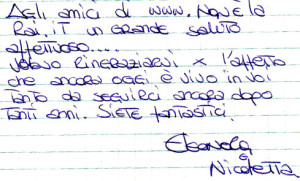 Agli amici di www.Novela
Rai.it un grande saluto
affettuoso....
Volevo ringraziarvi x l'affetto
che ancora oggi è vivo in voi
tanto da seguirci ancora dopo
tanti anni. Siete fantastici.
Eleonora
e
Nicoletta